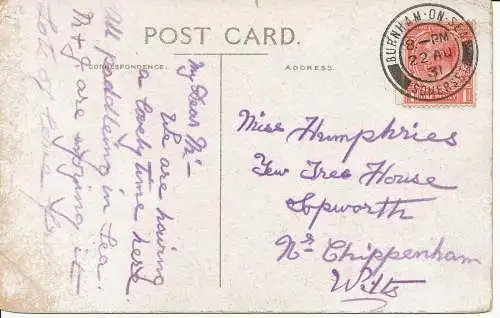 POST CARD.
CORRESPONDENCE.
ADDRESS.
BURNHAM-ON-SEA
8-PM
22 AU
31
SOMERSET
My Dear M-
We are having
a lovely time here
All paddleing in Sea.
M & J are enjoying it
Lots of love
Miss Humphries
Yew Tree House
Sopworth
Nr Chippenham
Wilts